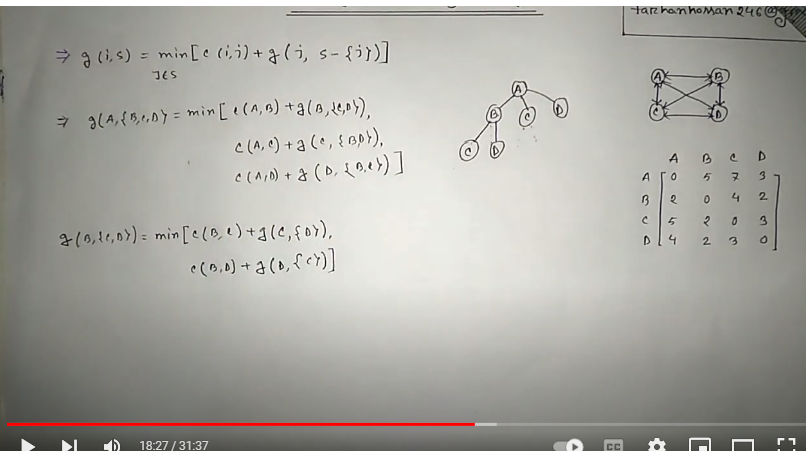 farhanhossan246@gm
⇒ g(i,s) = min[c(i,j)+g(j, s-{j})]
J∈S
⇒ g(A,{B,C,D} = min[c(A,B)+g(B,{C,D}),
c(A,C)+g(C,{B,D}),
c(A,D)+g(D,{B,C})]
g(B,{C,D}) = min[c(B,C)+g(C,{D}),
c(B,D)+g(D,{C})]
A
B
C
D
C
D
A B
C D
A B C D
A 0 5 7 3
B 2 0 4 2
C 5 2 0 3
D 4 2 3 0
18:27 / 31:37
CC